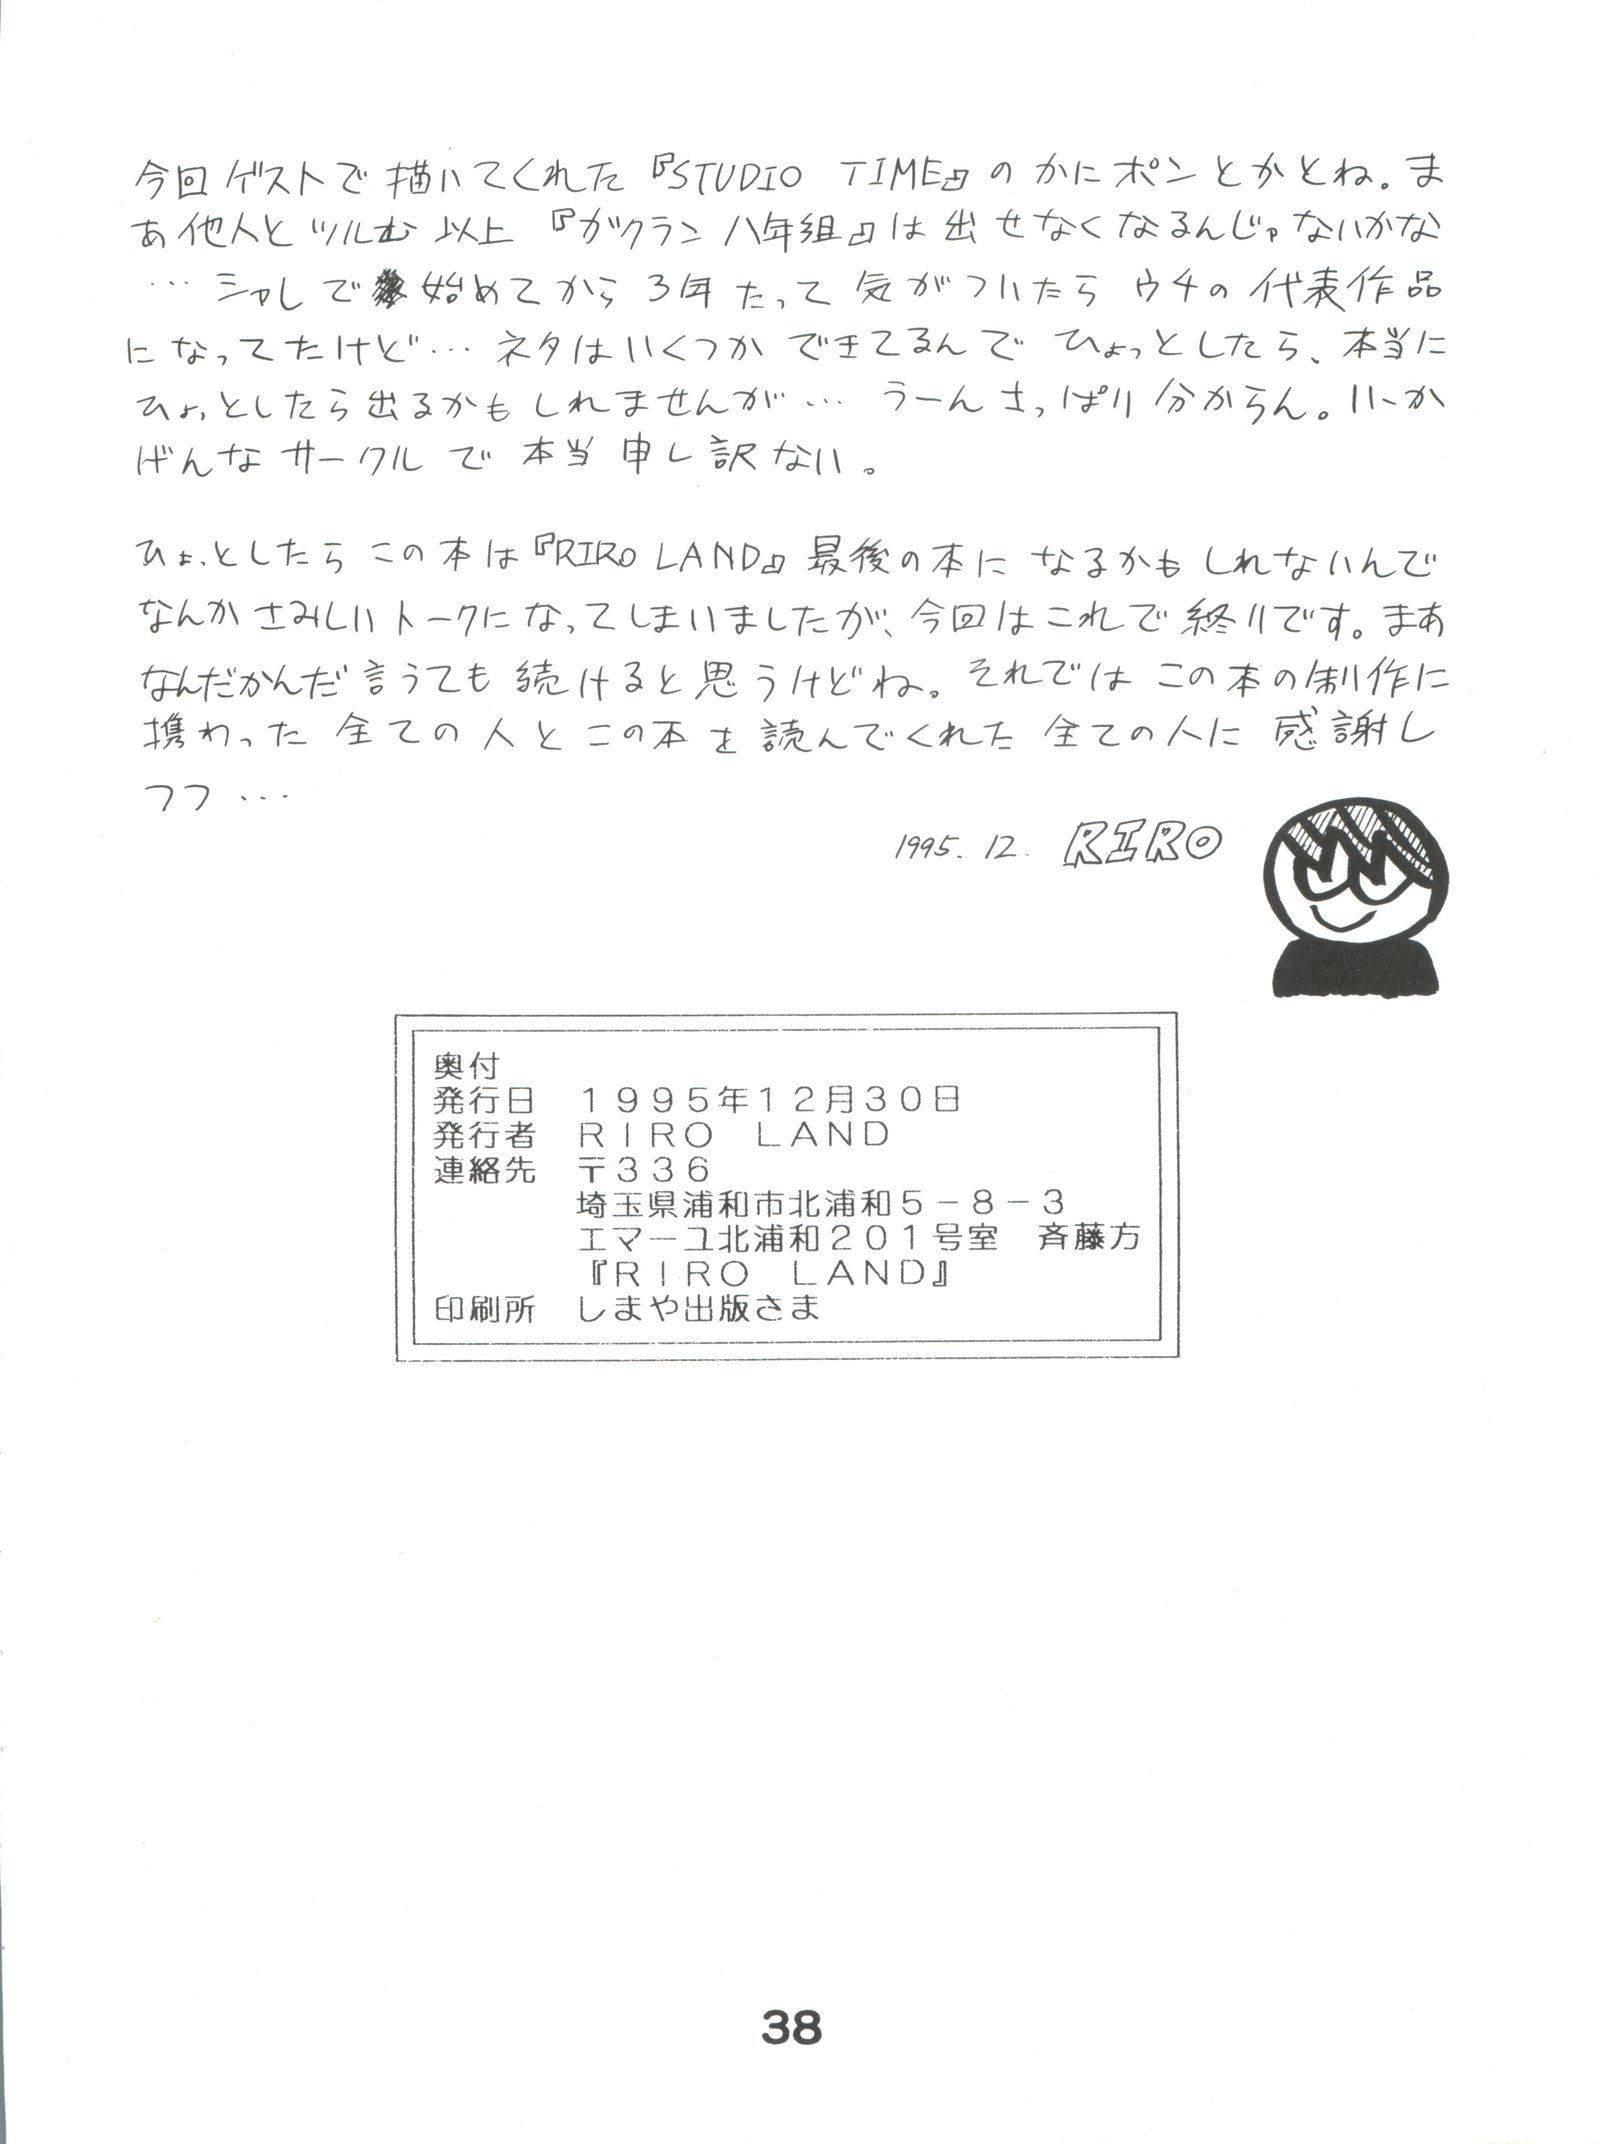 今回ゲストで描いてくれた『STUDIO TIME』のかにポンとかとね。ま
あ他人とツルむ以上『ガクラン八年組』は出せなくなるんじゃないかな
…シャレで始めてから3年たって気がついたらウチの代表作品
になってたけど…ネタはいくつかできてるんでひょっとしたら、本当に
ひょっとしたら出るかもしれませんが…うーんさっぱり分からん。いーか
げんなサークルで本当申し訳ない。
ひょっとしたらこの本は『RIRO LAND』最後の本になるかもしれないんで
なんかさみしいトークになってしまいましたが、今回はこれで終りです。まあ
なんだかんだ言うても続けると思うけどね。それではこの本の制作に
携わった全ての人とこの本を読んでくれた全ての人に感謝し
つつ…
1995.12. RIRO
奥付
発行日 1995年12月30日
発行者 RIRO LAND
連絡先 〒336
埼玉県浦和市北浦和5-8-3
エマーユ北浦和201号室 斉藤方
『RIRO LAND』
印刷所 しまや出版さま
38